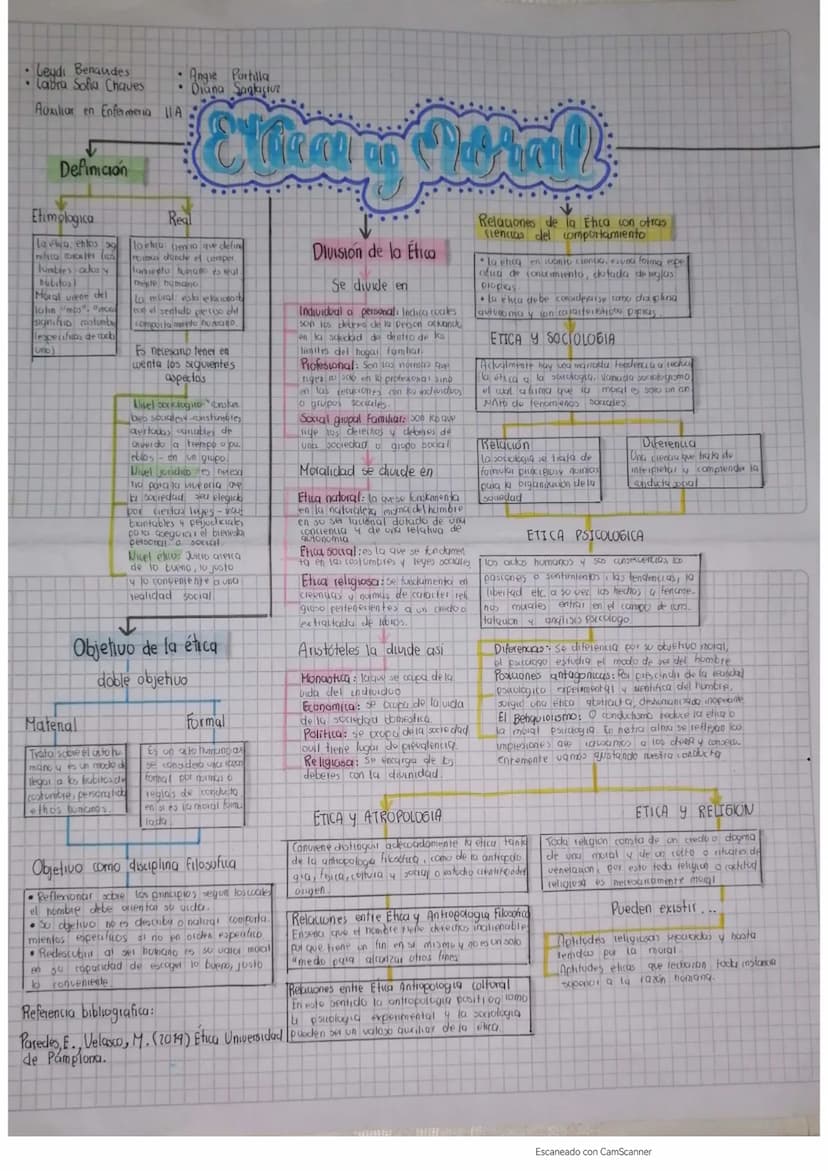 • Leydi Benavides
• Laura Sofia Chaves
• Angie Portilla
• Diana Santacruz
Auxiliar en Enfermeria 11A
Etica y Moral
Definición
Etimologica
La etica, ethos sig
nifica
tumbres
habitos)
Moral viene del
latin "mos",
significa costumb
Real
La etica: ciencia que define
norma donde el compor
tamiento humano es real
mente humano
La moral: esta relacionada
con el sentido previo del
comportamiento humano.
Es necesario tener en
cuenta los siguientes
aspectos
Nivel sociologico:
bres sociales-costumbres
variables de
acuerdo a tiempo o pu
eblos - en un grupo.
Nivel juridico: es necesa
rio para la vivencia que
la sociedad sea elegida
por ciertas leyes
y perjudiciales
para asegurar el bienesta
personal o social.
Nivel etico: Juicio acerca
de lo bueno, lo justo
y lo conveniente a una
realidad social.
Objetivo de la ética
doble objetivo
Material
Trata sobre el acto hu
mano y es un modo d
llegar a los habitos de
costumbre, personalida
ethos humanos.
Formal
Es un acto humano que
se considera
formal por normas o
reglas de conducta
en si es la moral formu
lada.
Objetivo como disciplina Filosofica
• Reflexionar sobre los principios según los cuales
el hombre debe orientar su vida.
• Su objetivo no es describir o natural comporta
mientos especificos si no en orden especifico
• Redescubrir al ser humano es su valor moral
en su capacidad de escoger lo bueno, justo
lo conveniente
Referencia bibliografica:
Paredes, E., Velasco, M. (2019) Ética Universidad
de Pamplona.
División de la Ética
Se divide en
Individual o personal: Indica cuales
son los deberes de la persona
en la sociedad de dentro de los
limites del hogar familiar.
Profesional: Son las normas que
rigen no solo en la profesional sino
en las relaciones con los individuos
o grupos sociales.
Social grupal Familiar: son los que
rige los derechos y deberes de
una sociedad o grupo social
Moralidad se divide en
Etica natural: la que se fundamenta
en la naturaleza misma del hombre
en su ser racional dotado de una
conciencia y de una relativa de
autonomia
Etica social: es la que se fundamen
ta en las costumbres y leyes sociales
Etica religiosa: se fundamenta en
creencias y normas de caracter reli
gioso pertenecientes a un credo o
extraitada de libros.
Aristóteles la divide asi
Monastica: la que se ocupa de la
vida del individuo
Economica: se ocupa de la vida
de la sociedad domestica.
Politica: se ocupa de la sociedad
civil tiene lugar de prevalencia.
Religiosa: Se encarga de los
deberes con la divinidad.
Relaciones de la Etica con otras
ciencias del comportamiento
• La etica en cuanto ciencia, es una forma espe
cifica de conocimiento, dotada de reglas
propias
• La etica debe considerarse como disciplina
autonoma y con caracteristicas propias.
ETICA Y SOCIOLOGIA
Actualmente hay una marcada tendencia a reducir
la etica a la sociologia, llamada sociologismo
el cual afirma que la moral es solo un con
junto de fenomenos sociales.
Relación
La sociologia se trata de
formular principios
para la organizacion de la
sociedad
Diferencia
Una ciencia que trata de
interpretar y comprender la
conducta social
ETICA PSICOLOGICA
Los actos humanos y sus consecuencias, las
pasiones o sentimientos, las tendencias, la
libertad etc. a su vez los hechos o fenome-
nos morales entran en el campo de
y análisis psicologo
Diferencias: Se diferencia por su objetivo moral,
el psicologo estudia el modo de ser del hombre
Posiciones antagonicas: Por prescindir de la realidad
psicologica experimental y cientifica del hombre,
surgió una etica abstracta, deshumanizada
El Behaviorismo: O conductismo reduce la etica o
la moral psicologia. En nuestra alma se reflejan las
impresiones que causamos a los otros y consecu
entemente vamos ajustando nuestra conducta
ETICA Y ATROPOLOGIA
Conviene distinguir adecuadamente la etica tanto
de la antropologia filosofica, como de la antropolo
gia, fisica, cultura y social o estudio cientifico del
origen.
Relaciones entre Etica y Antropologia Filosofica
Enseña que el hombre tiene derechos inalienables
porque tiene un fin en si mismo y no es un solo
"medio para alcanzar otros fines
Relaciones entre Etica Antropologia cultural
En este sentido la antropologia positiva como
la psicologia experimental y la sociologia
pueden ser un valioso auxiliar de la etica.
ETICA Y RELIGION
Toda religion consta de un credo o dogma
de una moral y de un culto o rituales de
veneracion, por esto toda religion o actitud
religiosa es necesariamente moral
Pueden existir...
Aptitudes religiosas separadas y hasta
temidas por la moral.
Aptitudes eticas que rechazan toda instancia
superior a la razón humana.
Escaneado con CamScanner